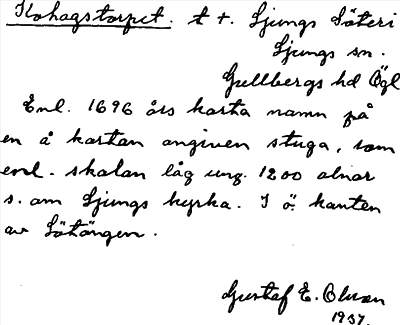 Kohagstorpet. t t. Ljungs Säteri
Ljungs sn.
Gullbergs hd Ögl
Enl. 1696 års karta namn på
en å kartan angiven stuga, som
enl. skalan låg ung. 1200 alnar
s. om Ljungs kyrka. I ö. kanten
av Sötängen.
Gustaf E. Olsson
1937.